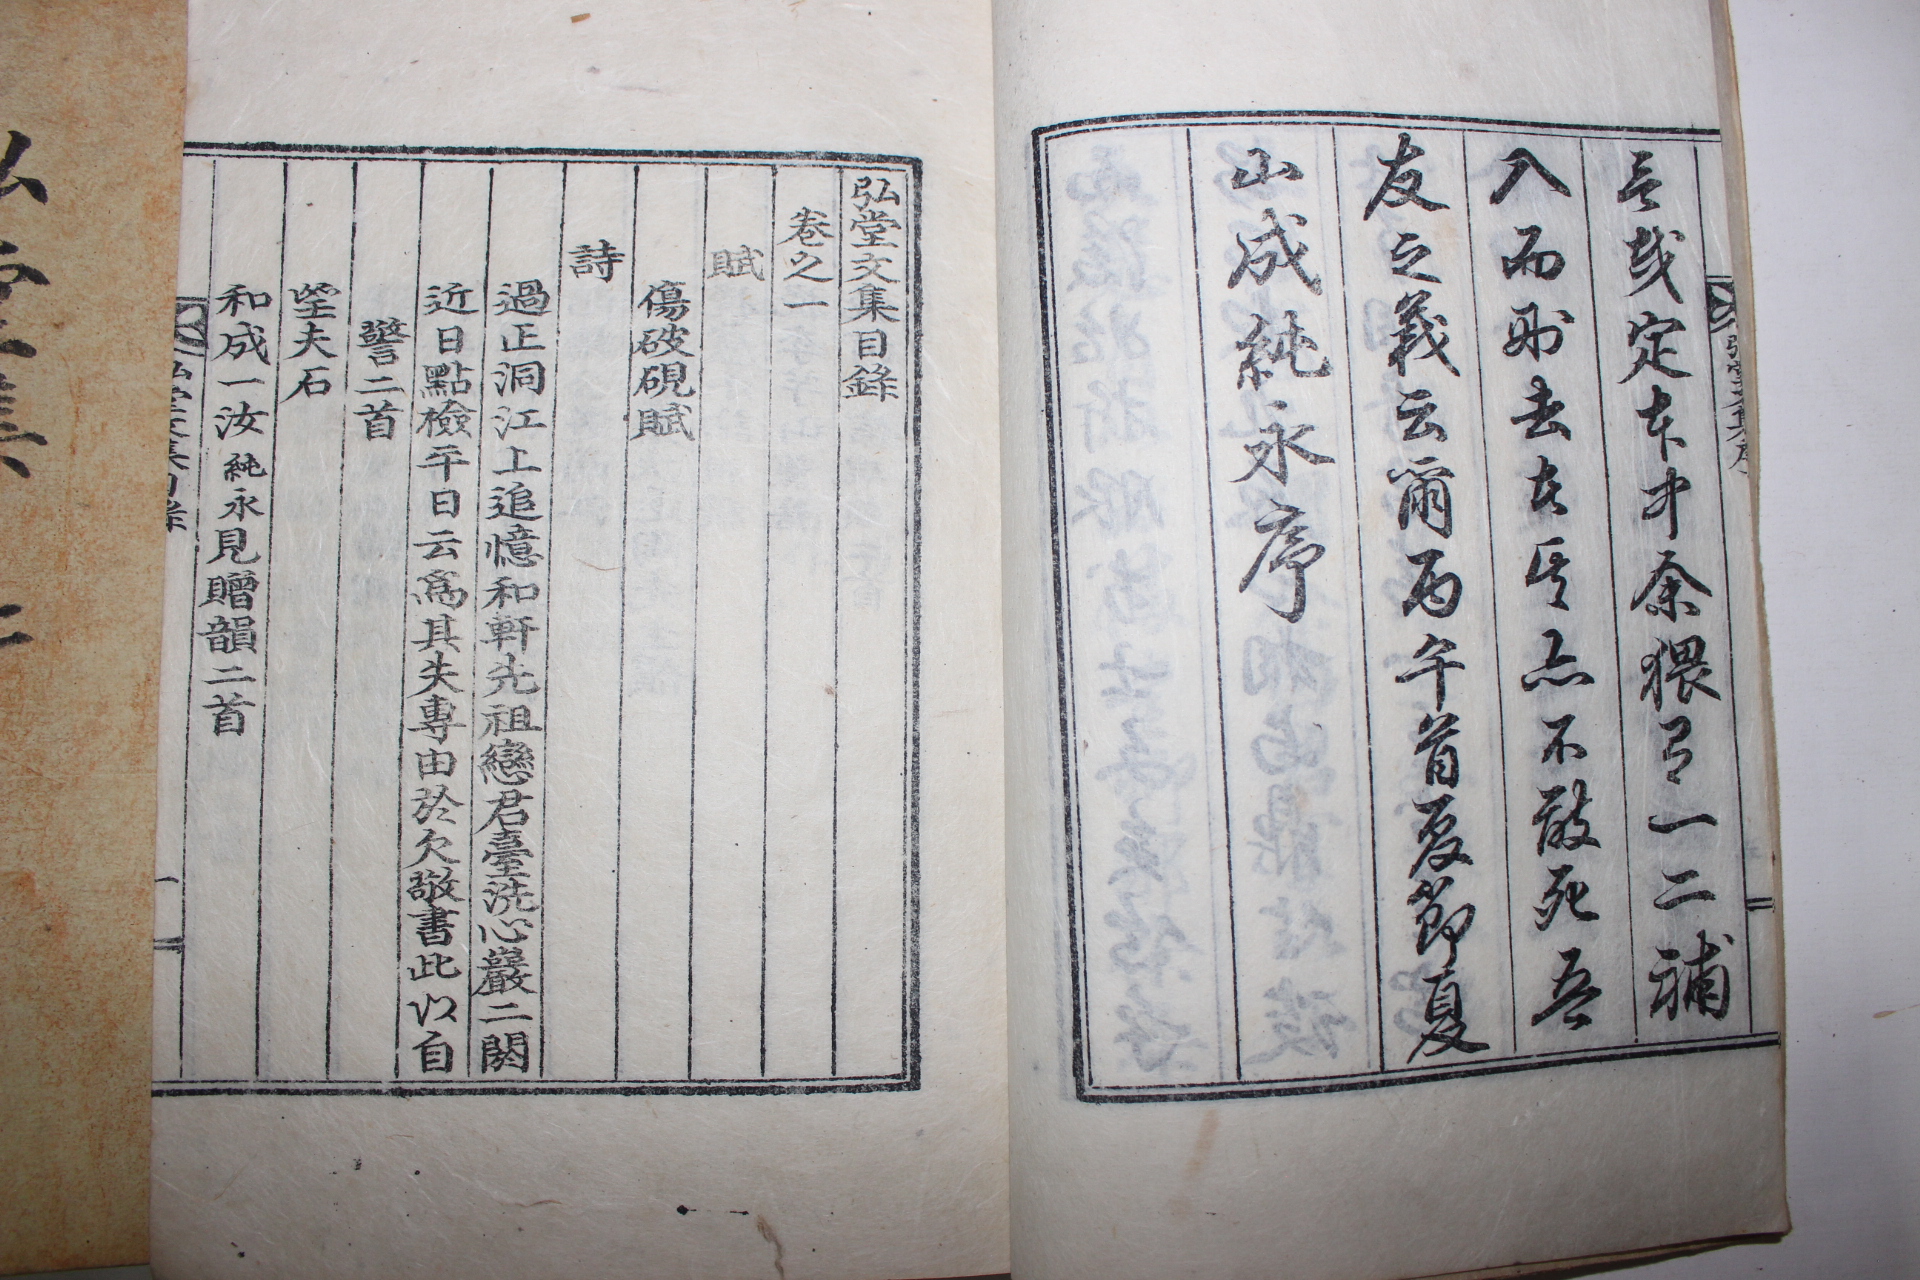 言哉定本中余猥有一二補
入而刪去在其亦不敢死吾
友之義云爾丙午首夏節夏
山成純永序
弘堂文集目錄
卷之一
賦
傷破硯賦
詩
過正洞江上追憶和軒先祖戀君臺洗心巖二闋
近日點檢平日云爲其失專由於欠敬書此以自
警二首
望夫石
和成一汝純永見贈韻二首
弘堂文集目錄